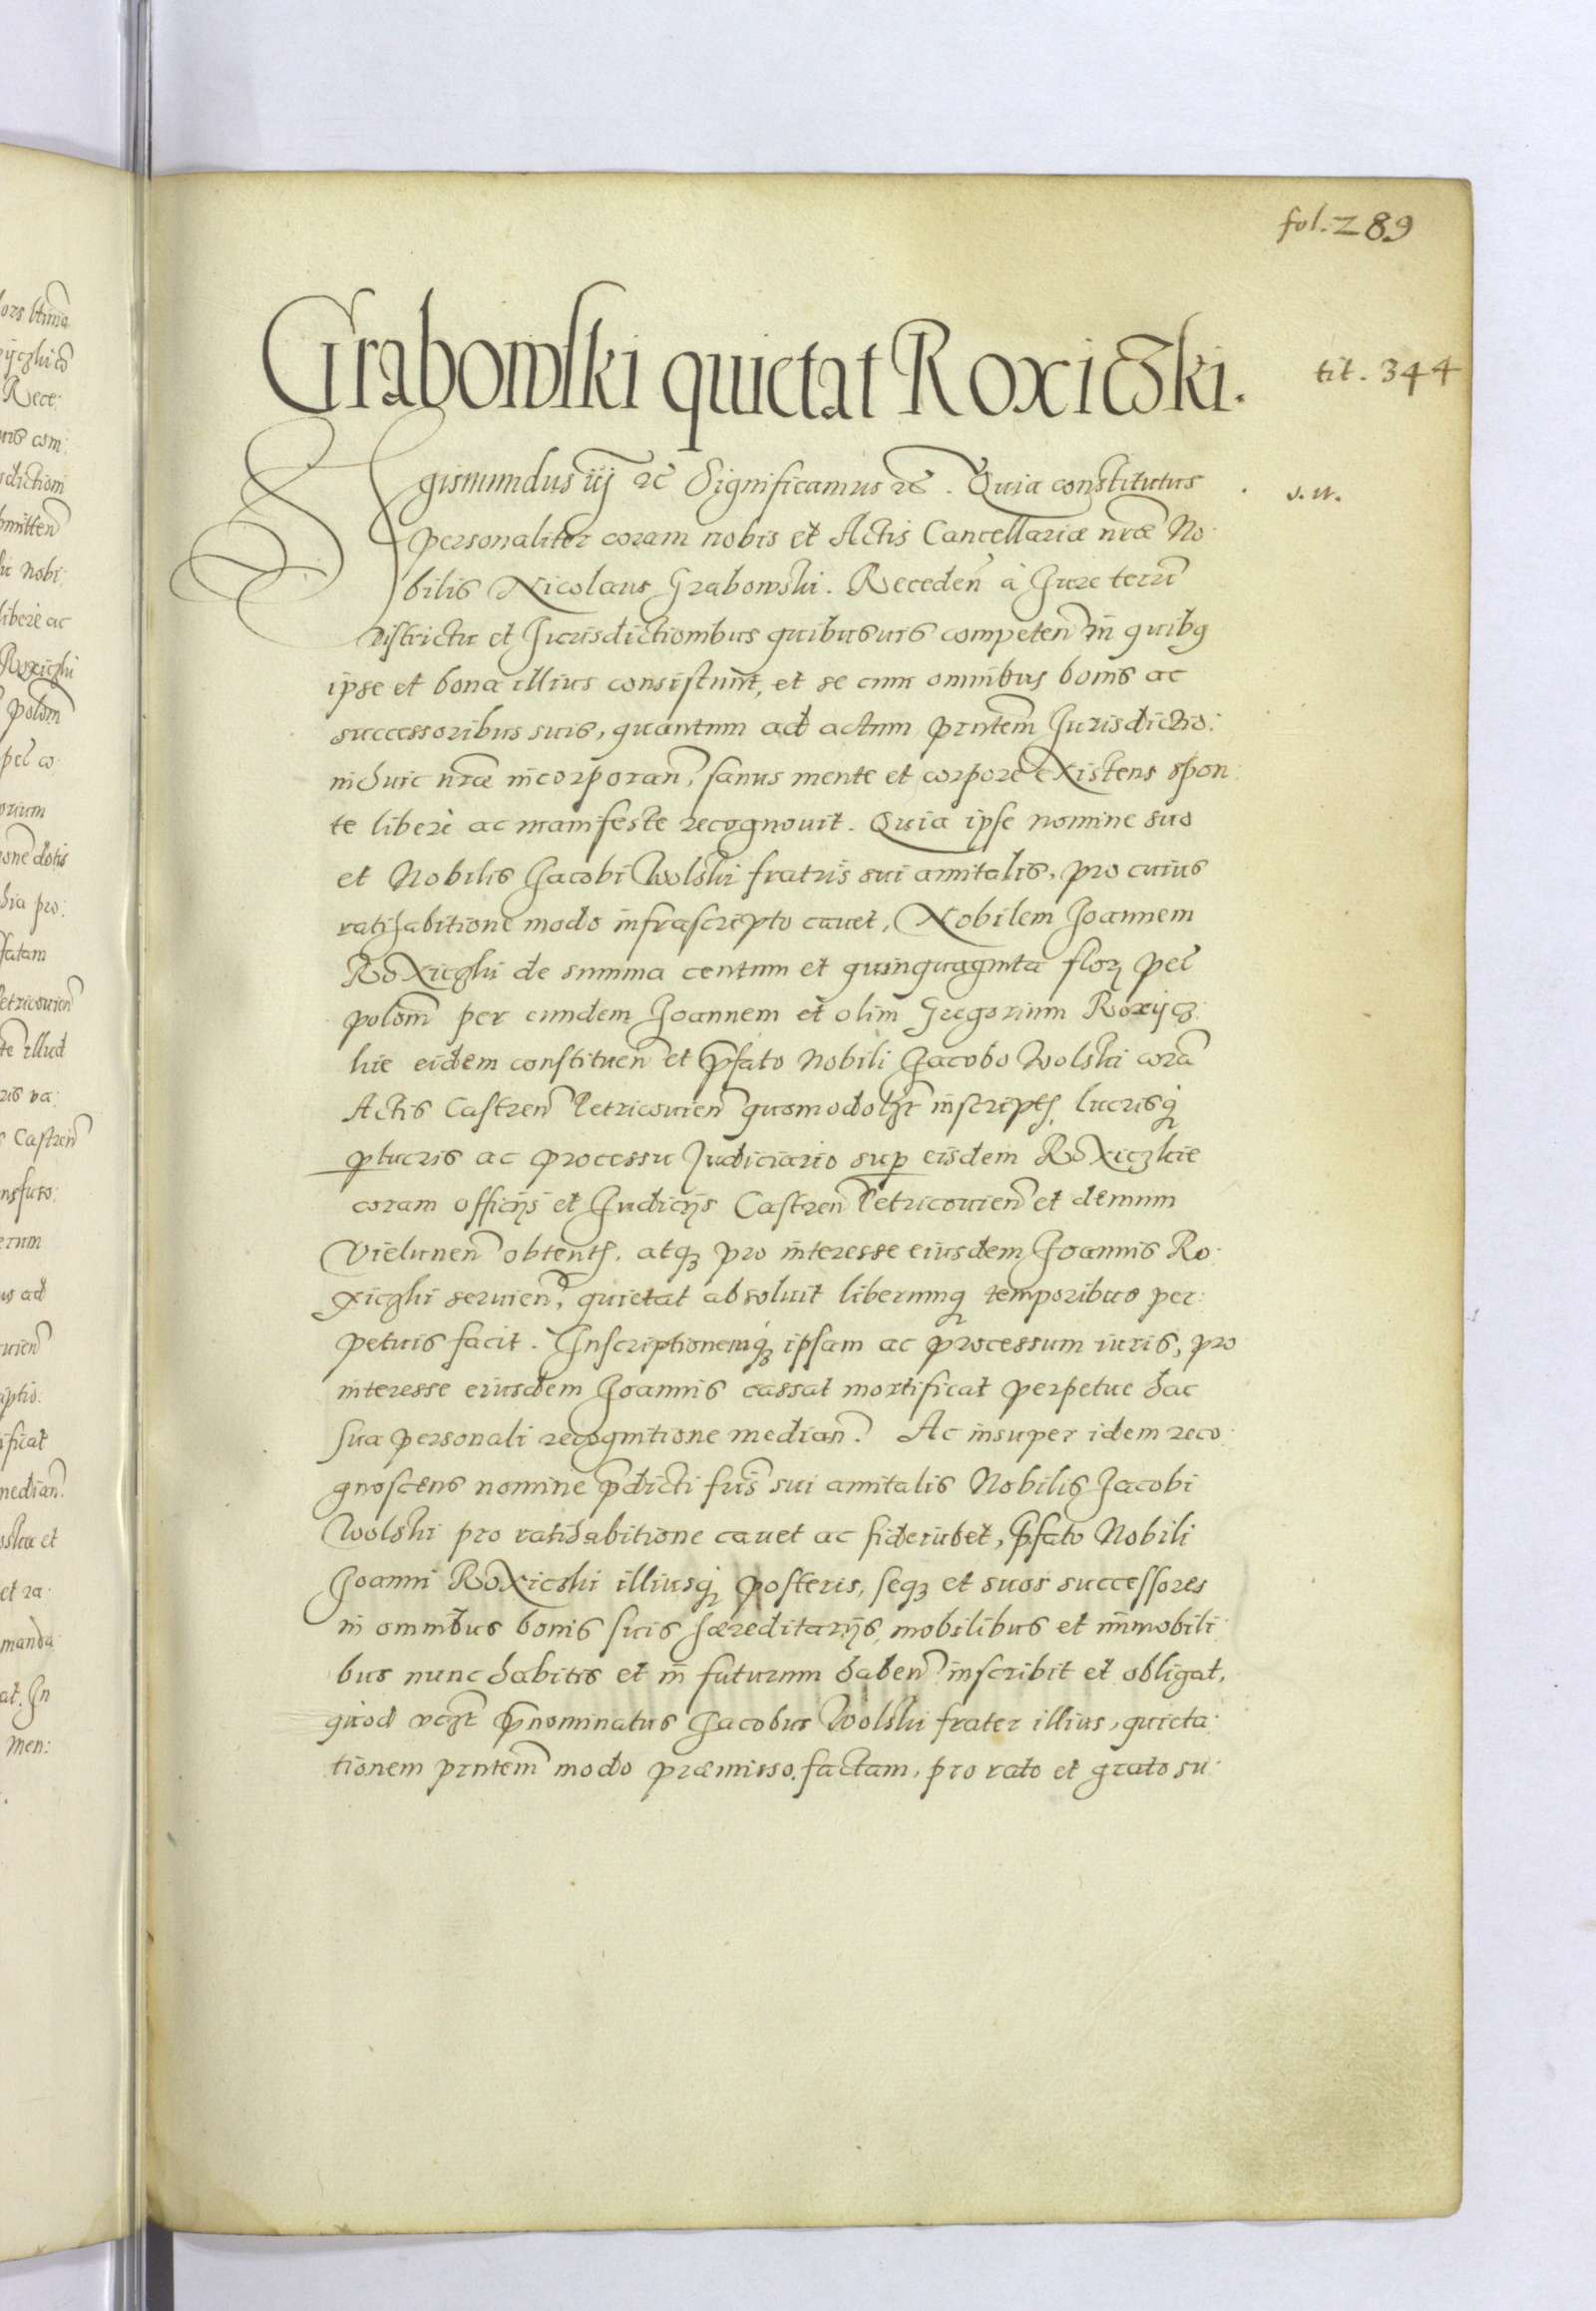 fol. 289
Grabowski quietat Roxiczki.
tit. 344
Sigismundus iij etc Significamus etc. Quia constitutus
s. n.
personaliter coram nobis et Actis Cancellariæ nr̃æ No:
bilis Nicolaus Grabowski. Receden̄ à Jure terrī
districtu et Jurisdictionibus quibusuis competen̄ in quibꝫ
ipse et bona illius consistunt, et se cum omnibus bonis ac
successoribus suis, quantum ad actum prntem̄ Jurisdictio:
ni huic nr̃æ incorporan̄, sanus mente et corpore existens spon:
te liberè ac manifeste recognouit. Quia ipse nomine suo
et Nobilis Jacobi Wolski fratris sui amitalis, pro cuius
ratihabitione modo infrascripto cauet, Nobilem Joannem
Roxiczki de summa centum et quinquaginta flor̄ pec̄
polon̄ per eundem Joannem et olim Gregorium Roxycz:
kie eidem constituen̄ et p̄fato Nobili Jacobo Wolski corā
Actis Castren̄ Petricouien̄ quomodolꝫt inscriptꝭ, lucrisqꝫ
ꝑlucris ac processu Judiciario suꝑ eisdem Roxiczkie
coram officijs et Judicijs Castren̄ Petricouien̄ et demum
Vielunen̄ obtentꝭ. atqꝫ pro interesse eiusdem Joannis Ro:
xiczki seruien̄, quietat absoluit liberumqꝫ temporibus per:
petuis facit. Inscriptionemqꝫ ipsam ac processum iuris, pro
interesse eiusdem Joannis cassat mortificat perpetue hac
sua personali recognitione median̄. Ac insuper idem reco:
gnoscens nomine p̄dicti fr̄is sui amitalis Nobilis Jacobi
Wolski pro ratihabitione cauet ac fideiubet, p̄fato Nobili
Joanni Roxicski illiusqꝫ posteris, seqꝫ et suos successores
in omnibus bonis suis hæreditarijs, mobilibus et immobili:
bus nunc habitis et in futurum haben̄ inscribit et obligat,
quod p̄nominatus Jacobus Wolski frater illius, quieta:
tionem prntem̄ modo præmisso factam, pro rato et grato su: